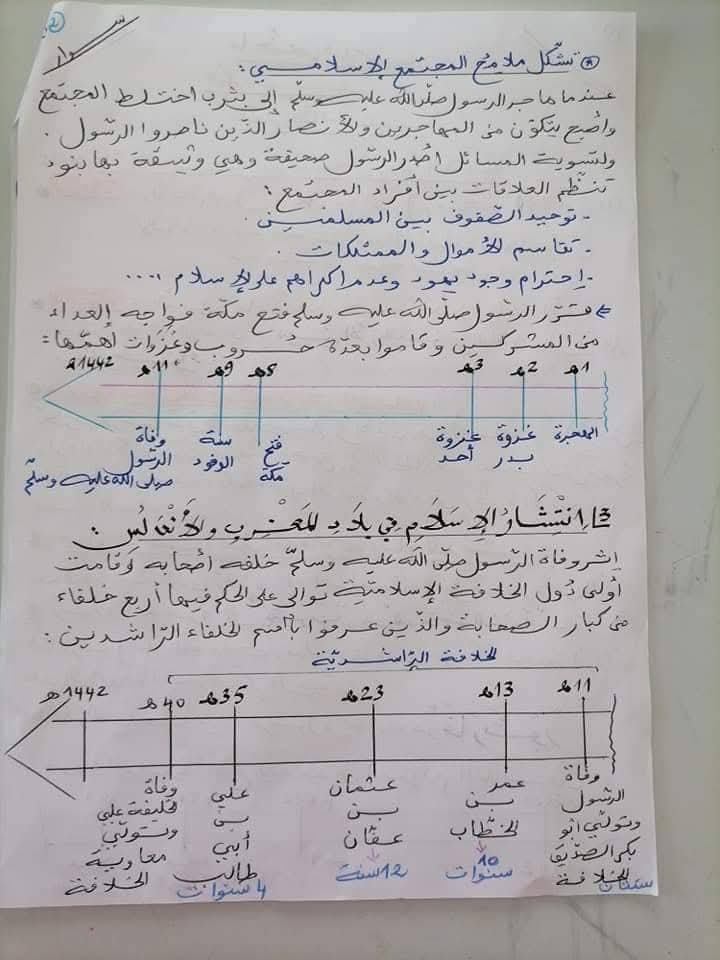 2
سوار
* تشكّل ملامح المجتمع الإسلامي :
عندما هاجر الرسول صلّى الله عليه وسلّم إلى يثرب اختلط المجتمع
وأصبح يتكوّن من المهاجرين والأنصار الذين ناصروا الرسول .
ولتسوية المسائل أصدر الرسول صحيفة وهي وثيقة بها بنود
تنظّم العلاقات بين أفراد المجتمع :
- توحيد الصّفوف بين المسلمين
- تقاسم الأموال والممتلكات
- إحترام وجود يهود وعدم إكراههم على الإسلام ....
⇐ قرّر الرسول صلّى الله عليه وسلّم فتح مكّة فواجه العداء
من المشركين وقاموا بعدّة حروب وغزوات أهمّها :
1هـ 2هـ 3هـ 8هـ 9هـ 11هـ 1442هـ
الهجرة غزوة بدر غزوة أحد فتح مكّة سنة الوفود وفاة الرسول صلى الله عليه وسلّم
3/ انْتِشَارُ الإِسْلَامِ فِي بِلَادِ المَغْرِبِ والأَنْدَلُسِ :
إثر وفاة الرّسول صلّى الله عليه وسلّم خلفه أصحابه وقامت
أولى دُول الخلافة الإسلاميّة توالى على الحكم فيها أربع خلفاء
من كبار الصحابة والذين عرفوا باسم الخلفاء الرّاشدين :
الخلافة الرّاشديّة
11هـ 13هـ 23هـ 35هـ 40هـ 1442هـ
وفاة الرسول وتولّي أبو بكر الصدّيق الخلافة
سنتان
عمر بن الخطّاب
10 سنوات
عثمان بن عفّان
12 سنة
علي بن أبي طالب
4 سنوات
وفاة الخليفة علي وتولّي معاوية الخلافة